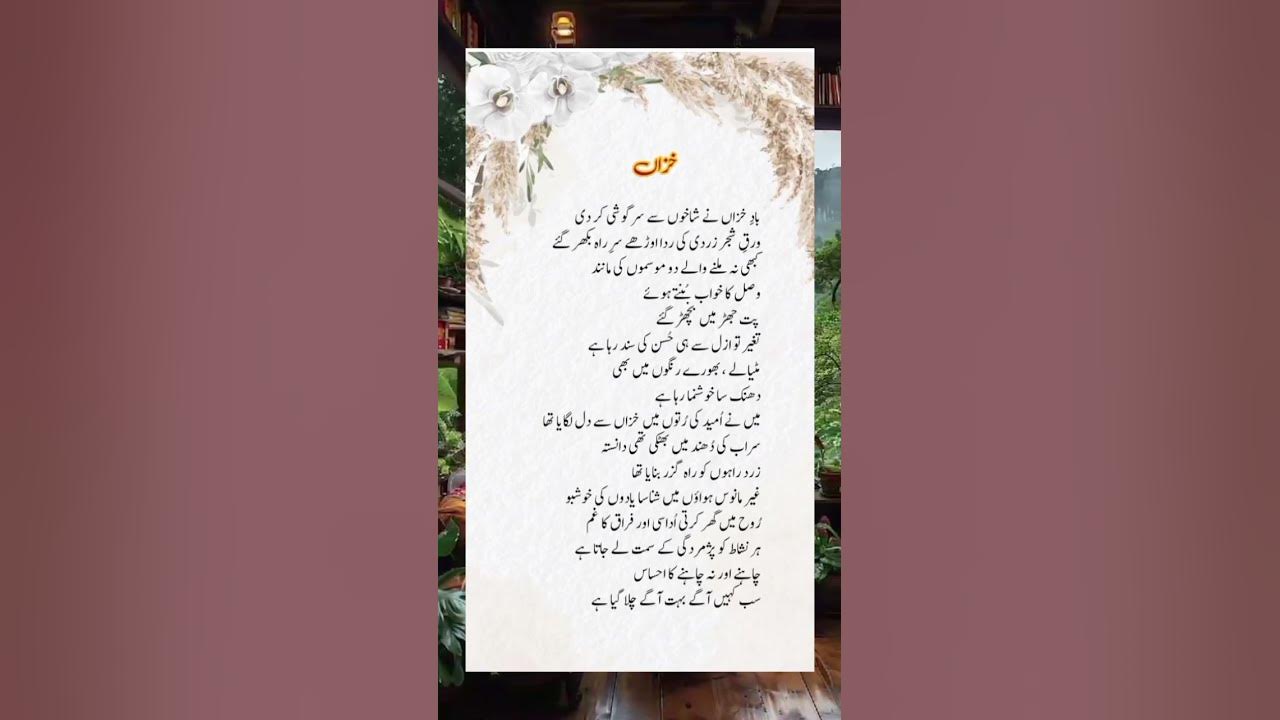 خزاں
بادِ خزاں نے شاخوں سے سرگوشی کر دی
ورقِ شجر زردی کی ردا اوڑھے سرِ راہ بکھر گئے
کبھی نہ ملنے والے دو موسموں کی مانند
وصل کا خواب بُنتے ہوئے
پت جھڑ میں بچھڑ گئے
تغیر تو ازل سے ہی حُسن کی سند رہا ہے
مٹیالے ، بھورے رنگوں میں بھی
دھنک سا خوشنما رہا ہے
میں نے اُمید کی رُتوں میں خزاں سے دل لگایا تھا
سراب کی دُھند میں بھٹکی تھی دانستہ
زرد راہوں کو راہ گزر بنایا تھا
غیر مانوس ہواؤں میں شناسا یادوں کی خوشبو
رُوح میں گھر کرتی اُداسی اور فراق کا غم
ہر نشاط کو پژمردگی کے سمت لے جاتا ہے
چاہنے اور نہ چاہنے کا احساس
سب کہیں آگے بہت آگے چلا گیا ہے